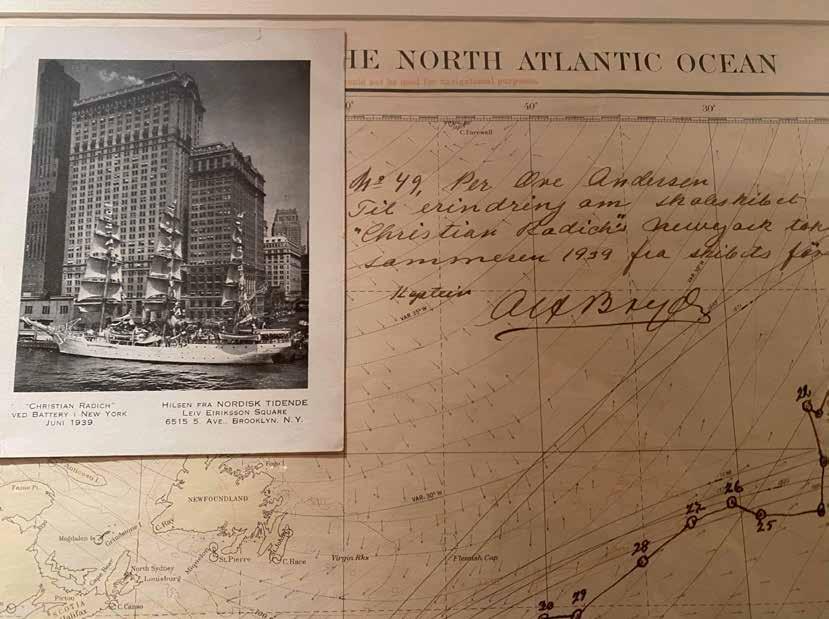 HE NORTH ATLANTIC OCEAN
ould not be used for navigational purposes.
0° 40° 30°
C. Farewell
No 49, Per Ove Andersen
Til erindring om skoleskibet
"Christian Radich"s Newyork tok
sommeren 1939 fra skibets för
Kaptein
VAR. 35° W
VAR. 30° W
"CHRISTIAN RADICH"
VED BATTERY I NEW YORK
JUNI 1939
HILSEN FRA NORDISK TIDENDE
LEIV EIRIKSSON SQUARE
6515 5. AVE., BROOKLYN, N.Y.
Anticosti I.
Fame Pt.
Fogo I.
NEWFOUNDLAND
C. Ray
Magdalen Is
St. Pierre
Miquelon
St. Johns
C. Race
Virgin Rks
Flemish Cap
North Sydney
Louisburg
Cape Breton
Pictou
SCOTIA
Halifax
C. Canso
100
26
25
27
28
29
30